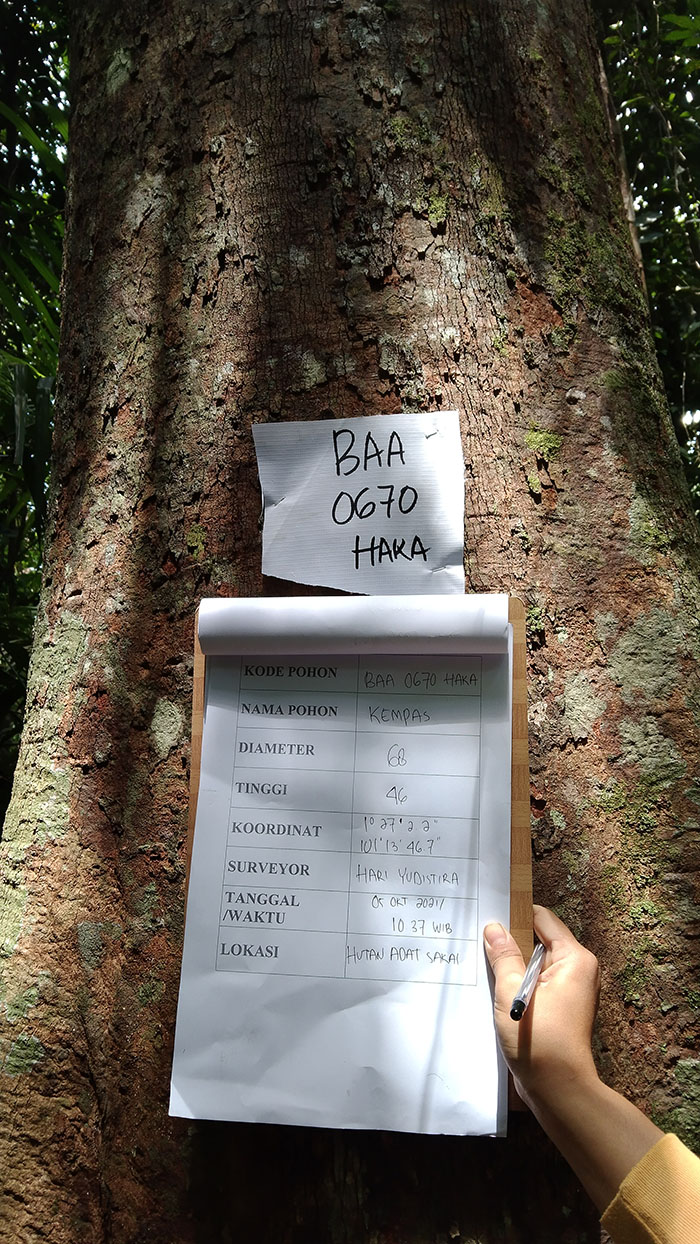 BAA
0670
HAKA
KODE POHON BAA 0670 HAKA
NAMA POHON KEMPAS
DIAMETER 68
TINGGI 46
KOORDINAT 1° 27' 2 2"
101° 13' 46.7"
SURVEYOR HARI YUDISTIRA
TANGGAL 05 OKT 2021/
/WAKTU 10 37 WIB
LOKASI HUTAN ADAT SAKAI